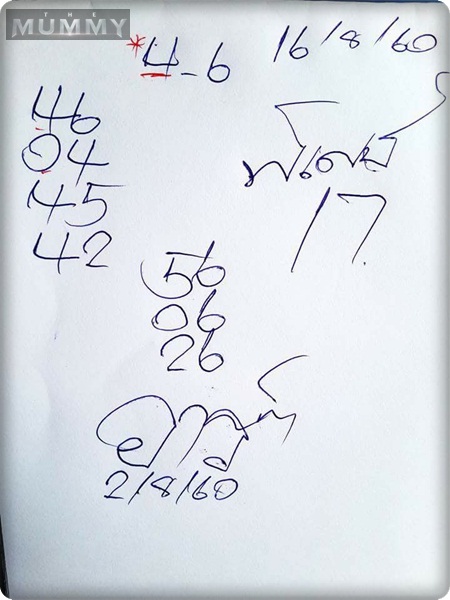 THE
MUMMY
*4-6
16/8/60
46
04
45
42
17
56
06
26
2/8/60